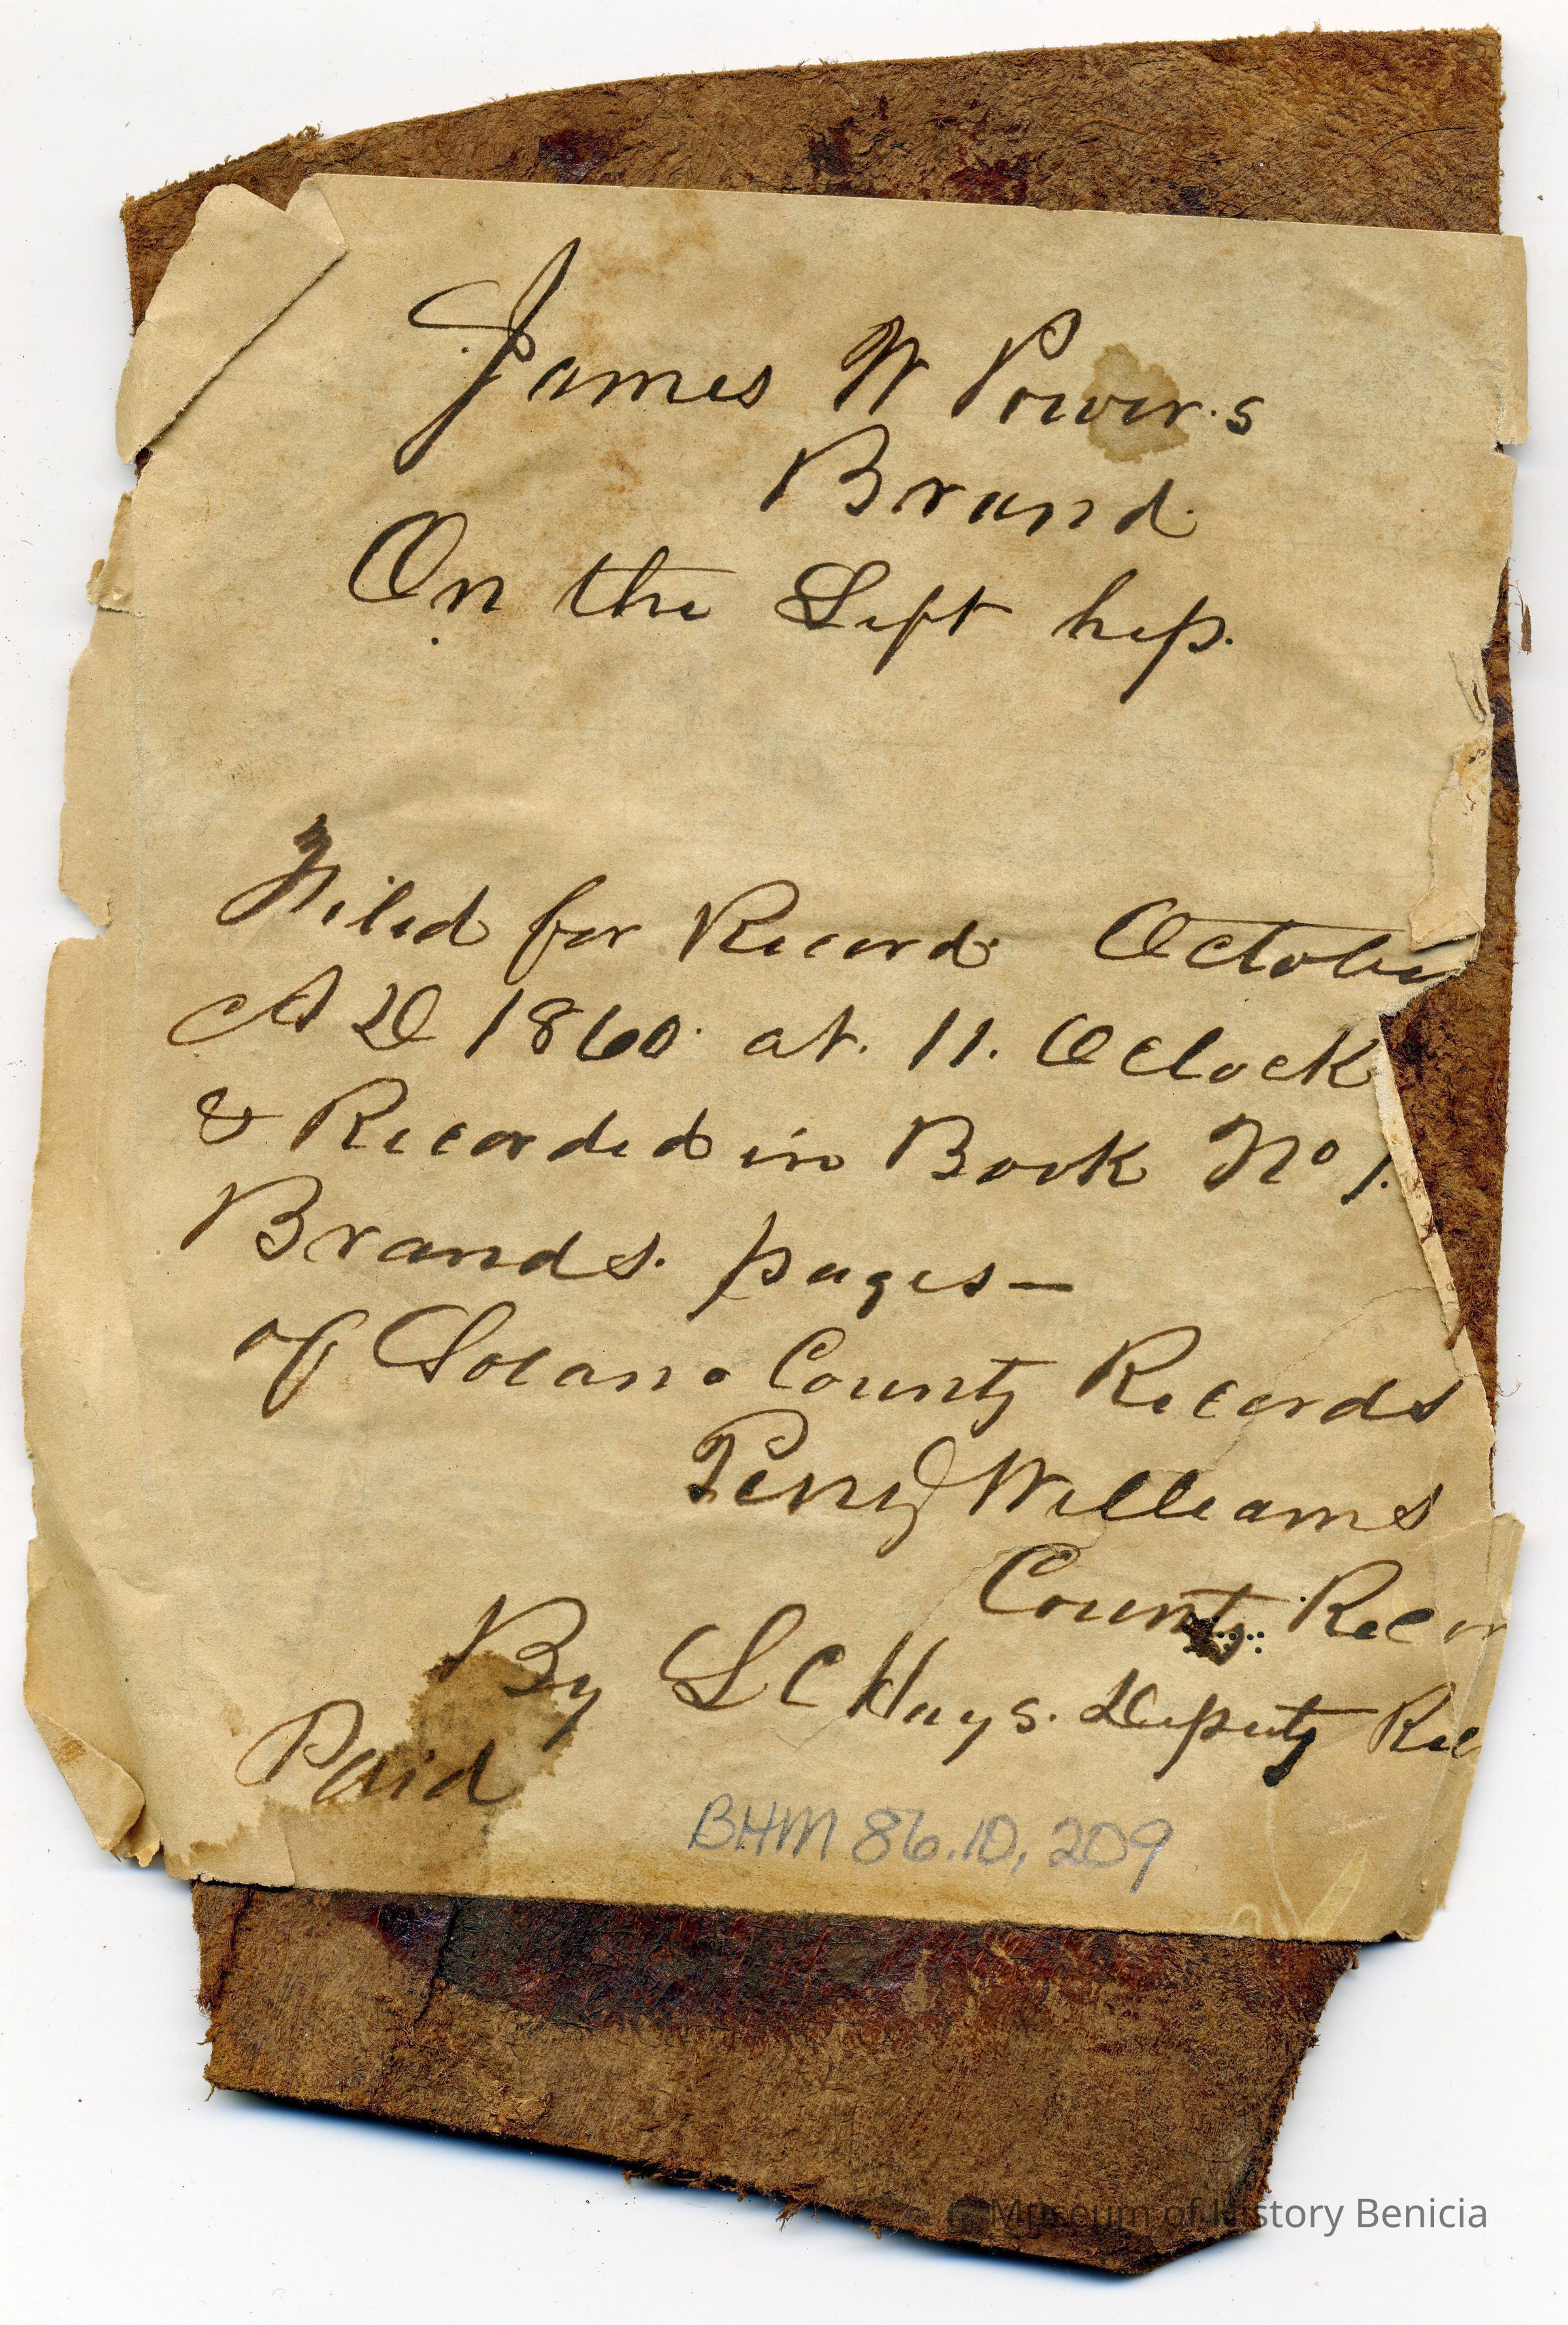 James W Power.s
Brand.
On the Left hip.
Filed for Record. October
A D 1860. at. 11. OClock
& Recorded in Book No 1.
Brands. pages—
of Solano County Records
Perry Williams
County Recor
By L C Hays. Deputy Rec
Paid
BHM 86.10.209
©Museum of History Benicia